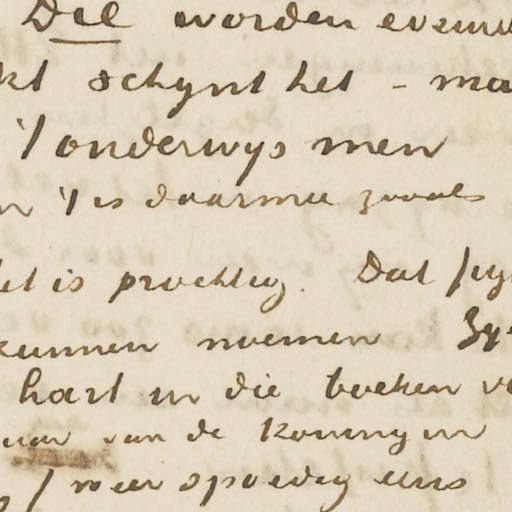 Die worden evenw
kt schynt het – ma
't onderwys men
n 't is daarmee zooals
Het is prachtig. Dat fyn
kunnen noemen Zy
hart in die boeken v
van de Koningin
weer spoedig eens